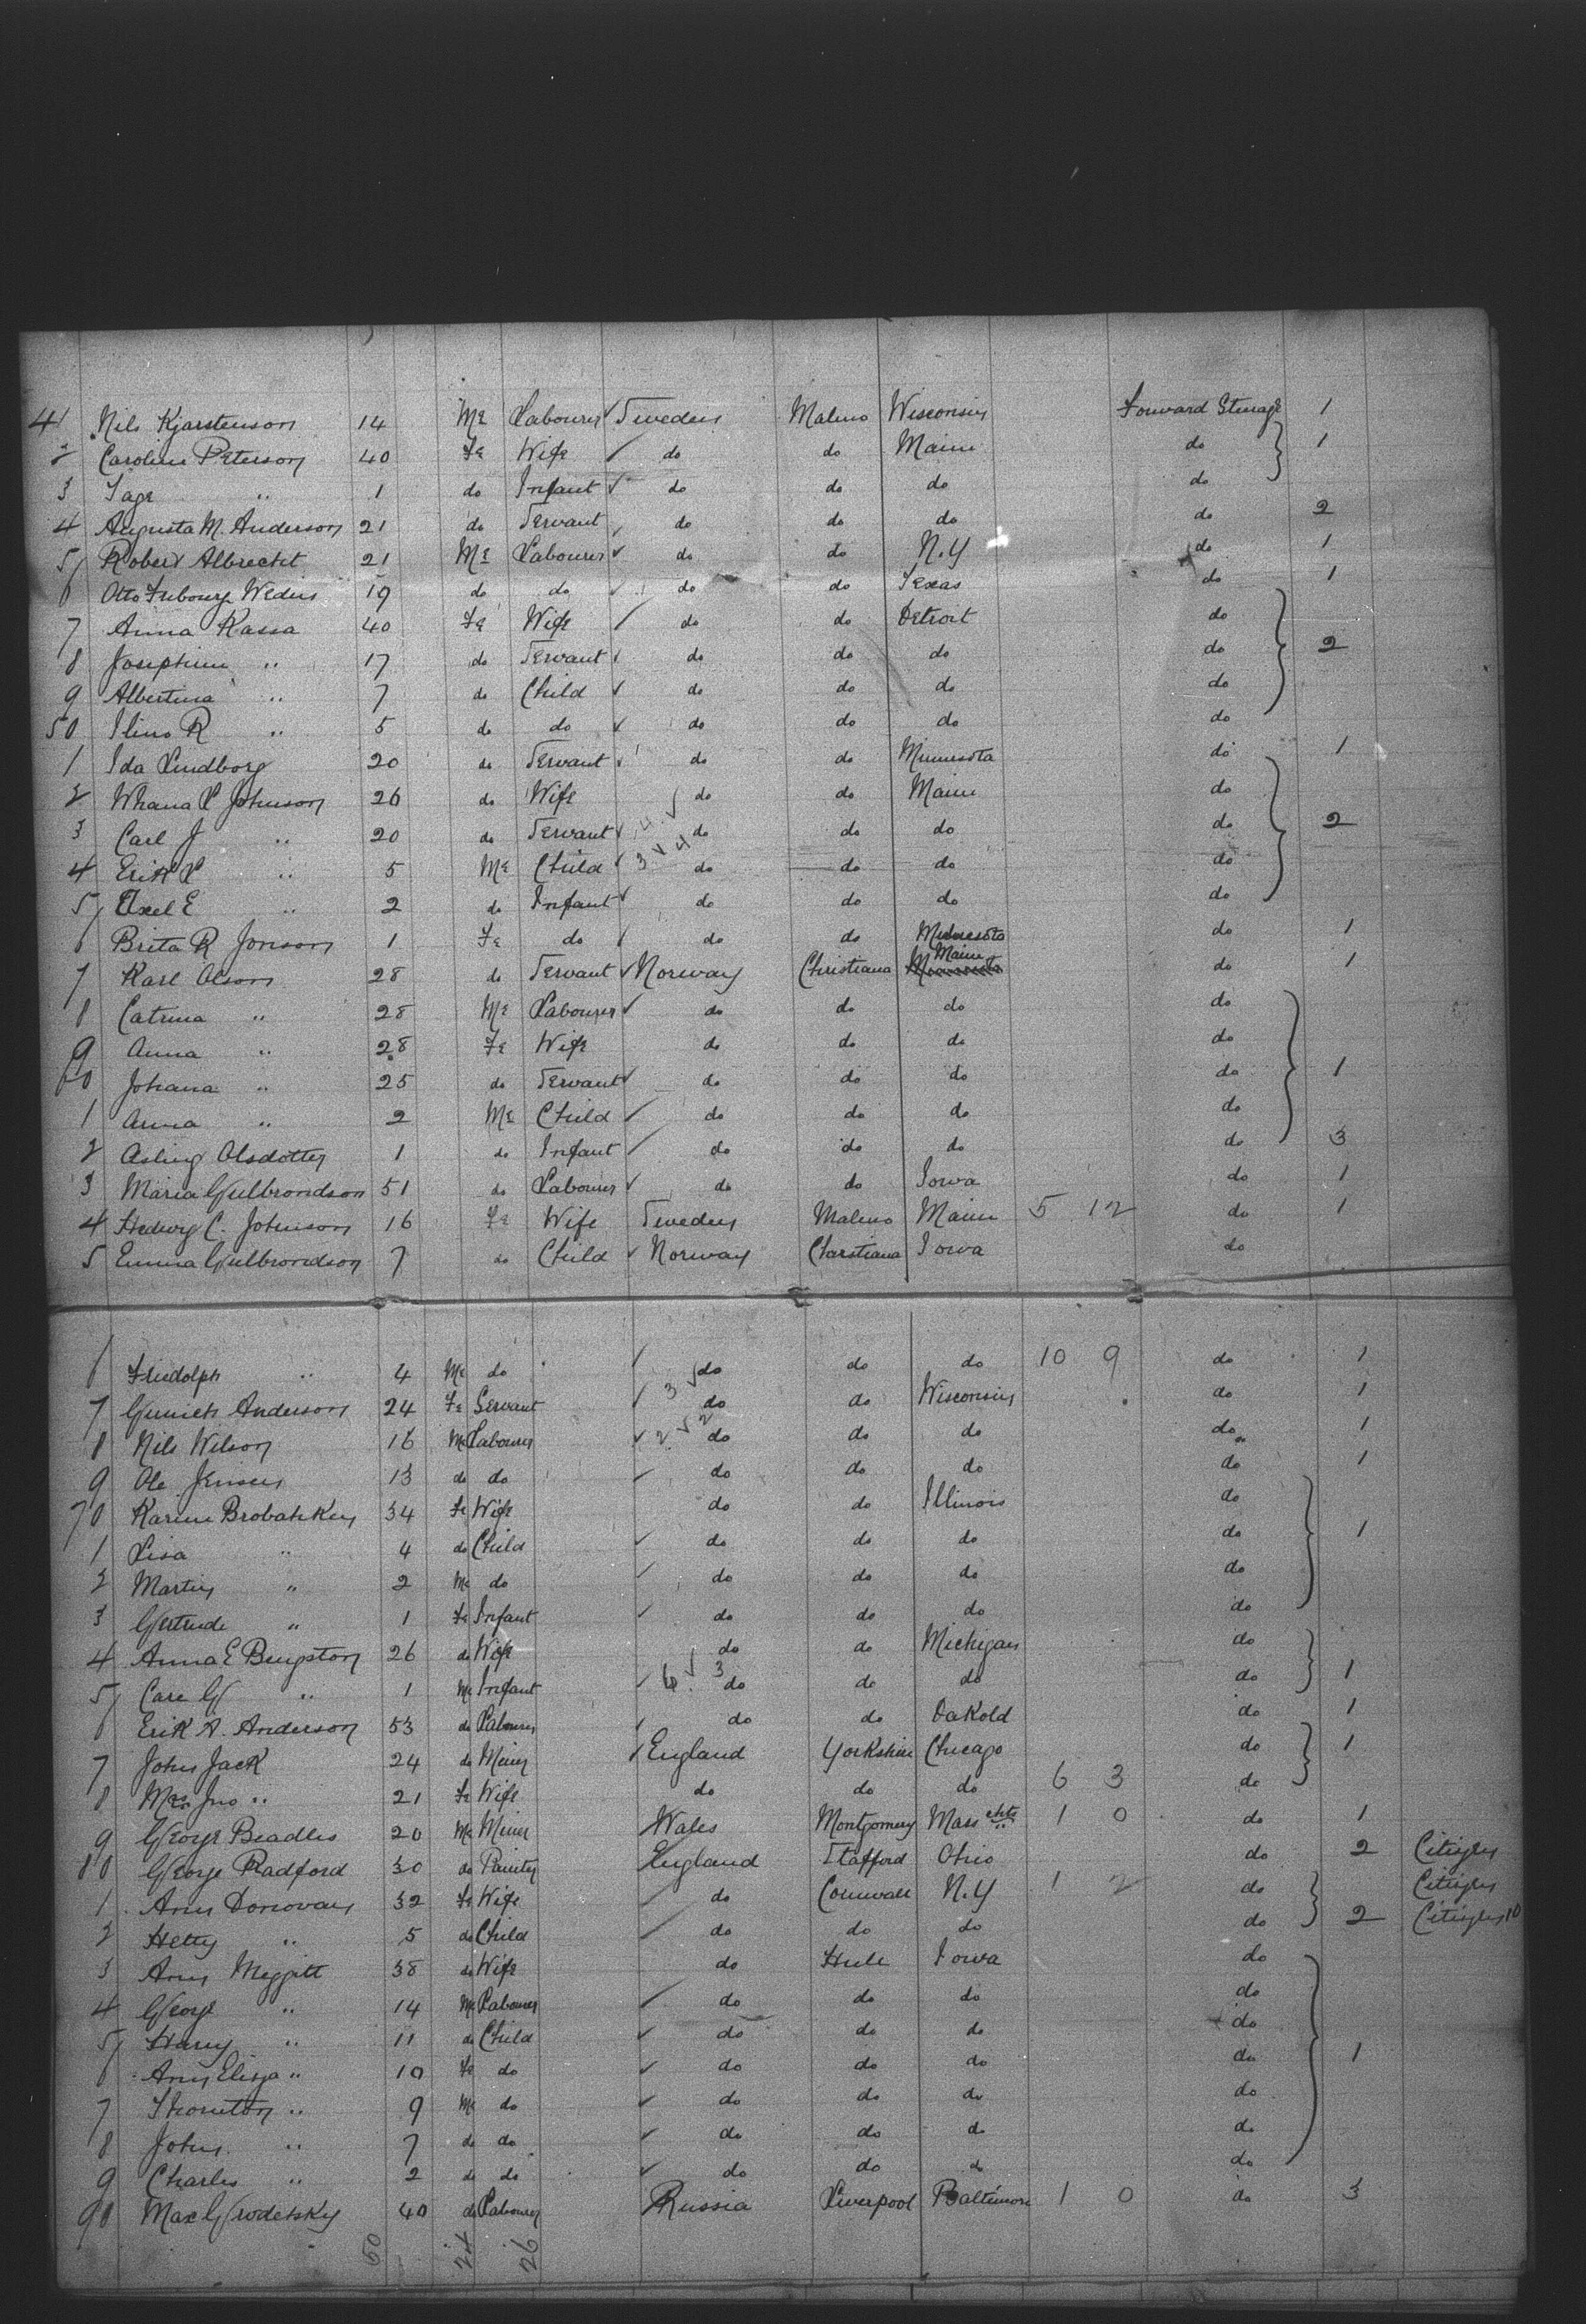 41 Nils Kjarstenson 14 Me Labourer Sweden Malmo Wisconsin Forward Steerage 1
2 Caroline Peterson 40 Fe Wife do do Maine do 1
3 Tage " 1 do Infant do do do do
4 Augusta M. Anderson 21 do Servant do do do do 2
5 Robert Albrecht 21 Me Labourer do do N.Y do 1
6 Otto 19 do do do do Texas do 1
7 Anna Kassa 40 Fe Wife do do Detroit do
8 Josephine " 17 do Servant do do do do 2
9 Albertina " 7 do Child do do do do
50 Ilino R " 5 do do do do do do
1 Ida Lindborg 20 do Servant do do Minnesota do 1
2 L Johnson 26 do Wife do do Maine do
3 Carl J " 20 do Servant do do do do 2
4 Erik L " 5 Me Child do do do do
5 Axel E " 2 do Infant do do do do
6 Brita R Jonson 1 Fe do do do Minnesota do 1
7 Karl Olson 28 do Servant Norway Christiana Maine do 1
8 Catrina " 28 Me Labourer do do do do
9 Anna " 28 Fe Wife do do do do
60 Johana " 25 do Servant do do do do 1
1 Anna " 2 Me Child do do do do
2 Olsdotter 1 do Infant do do do do 3
3 Maria Gulbrondson 51 do Labourer do do Iowa do 1
4 Hedwig C. Johnson 16 Fe Wife Sweden Malmo Maine 5 12 do 1
5 Emma Gulbrondson 7 do Child Norway Christiana Iowa do
6 Fridolph " 4 Me do do do do 10 9 do 1
7 Anderson 24 Fe Servant do do Wisconsin do 1
8 Nils Wilson 16 Me Labourer do do do do 1
9 Ole Jensen 13 do do do do do do 1
70 Karine 34 Fe Wife do do Illinois do
1 Lisa " 4 do Child do do do do 1
2 Martin " 2 Me do do do do do
3 Gertrude " 1 Fe Infant do do do do
4 Anna E Bengston 26 do Wife do do Michigan do
5 Carl G " 1 Me Infant do do do do 1
6 Erik A. Anderson 53 do Labourer do do Dakold do 1
7 John Jack 24 do Miner England Yorkshire Chicago do 1
8 Mrs Jno " 21 Fe Wife do do do 6 3 do
9 George Beadles 20 Me Miner Wales Montgomery Mass chts 1 0 do 1
80 George Radford 30 do Painter England Stafford Ohio do 2 Citizen
1 Ann Donovan 32 Fe Wife do Cornwall N.Y 1 2 do Citizen
2 Hetty " 5 do Child do do do do 2 Citizen 10
3 Ann Meggitt 38 do Wife do Hull Iowa do
4 George " 14 Me Labourer do do do do
5 Harry " 11 do Child do do do do
6 Ann Eliza " 10 Fe do do do do do 1
7 Thornton " 9 Me do do do do do
8 John " 7 do do do do do do
9 Charles " 2 do do do do do do
90 Max Grodetsky 40 do Labourer Russia Liverpool Baltimore 1 0 do 3
50 24 26